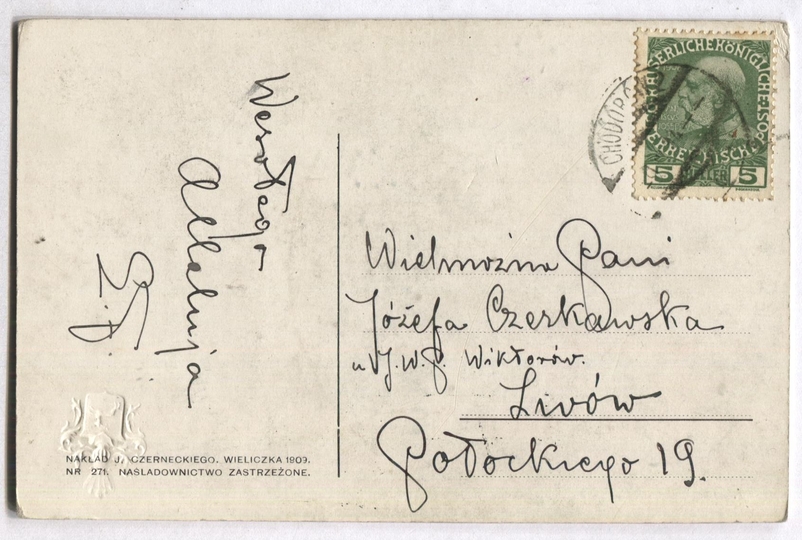 Wesołego
Alleluja
KAISERLICHEKÖNIGLICHE
POST
ÖSTERREICHISCHE
5 HELLER 5
Wielmożna Pani
Józefa Czerkawska
u J.W.P. Wiktorów.
Lwów
Potockiego 19.
NAKŁAD J. CZERNECKIEGO. WIELICZKA 1909.
NR 271. NAŚLADOWNICTWO ZASTRZEŻONE.